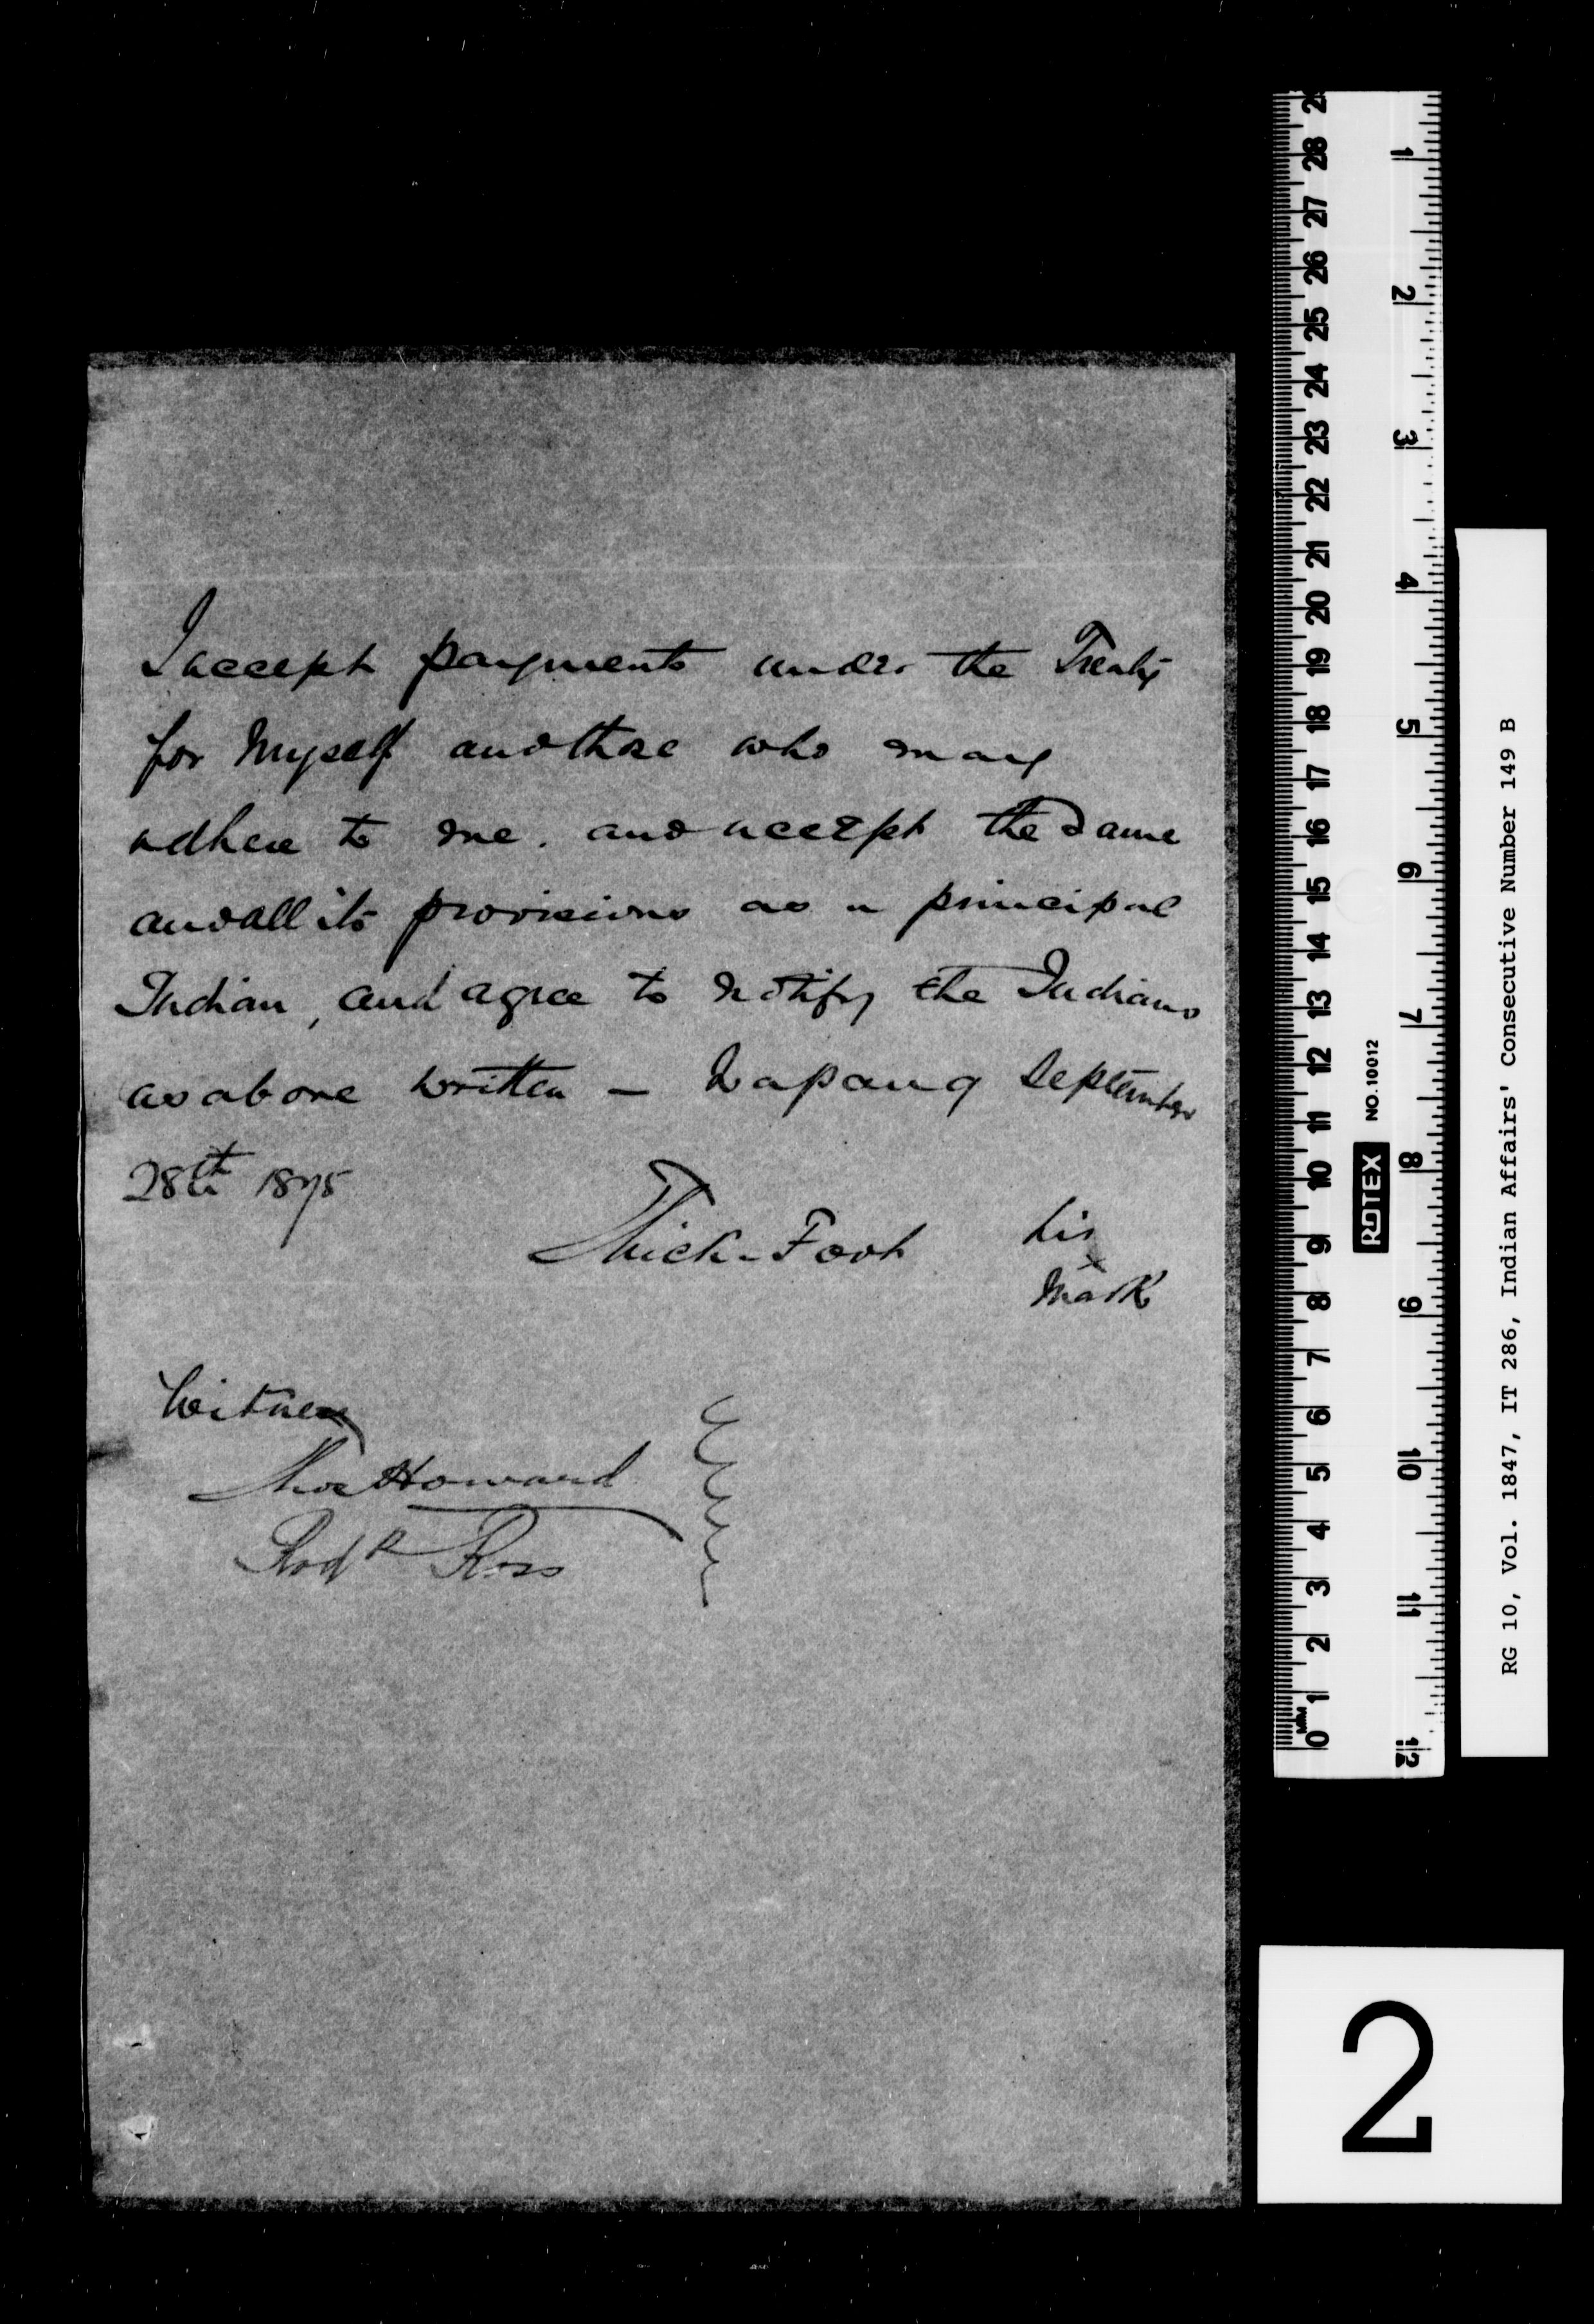 I accept payments under the Treaty
for Myself and those who may
adhere to me. and accept the Same
and all its provisions as a principal
Indian, and agree to notify the Indians
as above written – Wapang September
28th 1875
Thick-Foot his
x
Mark
Witness
Thos Howard
Rodk Ross
RG 10, Vol. 1847, IT 286, Indian Affairs' Consecutive Number 149 B
ROTEX NO.10012
MM
0 1 2 3 4 5 6 7 8 9 10 11 12 13 14 15 16 17 18 19 20 21 22 23 24 25 26 27 28 2
1 2 3 4 5 6 7 8 9 10 11 12
2